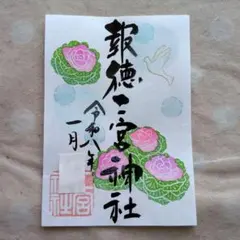 報徳二宮神社
令和八年
一月